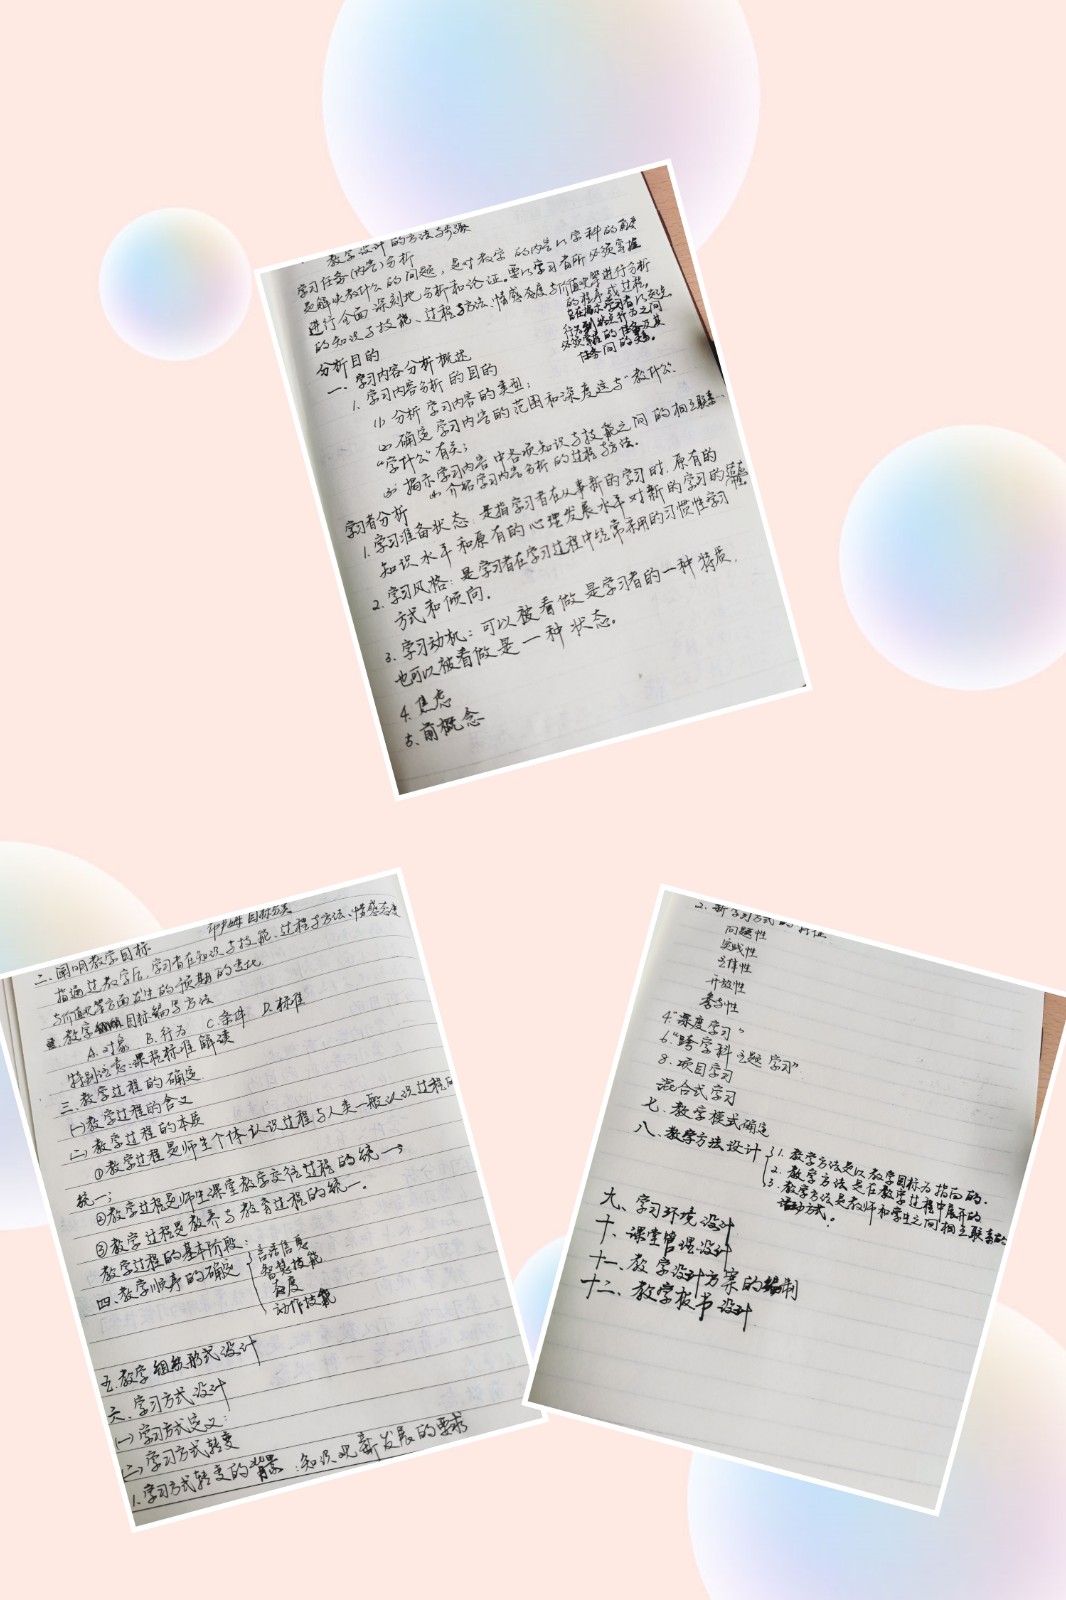 教学设计的方法与步骤
学习任务(内容)分析
是解决教什么的问题，是对教学的内容以学科的角度
进行全面深刻地分析和论证。要以学习者所必须掌握
的知识与技能、过程与方法、情感态度与价值观等进行分析
的程序或过程。
旨在揭示学习者从起点
行为到终点行为之间
必须掌握的任务及其
任务间的关系。
分析目的
一、学习内容分析概述
1. 学习内容分析的目的
(1) 分析学习内容的类型；
(2) 确定学习内容的范围和深度这与“教什么、
“学什么”有关；
(3) 揭示学习内容中各项知识与技能之间的相互联系
(4) 介绍学习内容分析的过程与方法。
学习者分析
1. 学习准备状态：是指学习者在从事新的学习时，原有的
知识水平和原有的心理发展水平对新的学习的
2. 学习风格：是学习者在学习过程中经常采用的习惯性学习
方式和倾向。
3. 学习动机：可以被看做是学习者的一种特质，
也可以被看做是一种状态。
4. 焦虑
5. 前概念
布卢姆目标分类
二、阐明教学目标
指通过教学后，学习者在知识与技能、过程与方法、情感态度
与价值观等方面发生的预期的变化
教学目标编写方法
A. 对象 B. 行为 C. 条件 D. 标准
特别注意：课程标准解读
三、教学过程的确定
(一)教学过程的含义
(二)教学过程的本质
①教学过程是师生个体认识过程与人类一般认识过程的
统一；
②教学过程是师生课堂教学交往过程的统一；
③教学过程是教养与教育过程的统一。
教学过程的基本阶段：
四、教学顺序的确定
言语信息
智慧技能
态度
动作技能
五、教学组织形式设计
六、学习方式设计
(一)学习方式定义：
(二)学习方式转变
1. 学习方式转变的背景：知识观新发展的要求
2. 新学习方式的特征：
问题性
实践性
主体性
开放性
参与性
4“深度学习”
6.“跨学科主题学习”
8. 项目学习
混合式学习
七、教学模式确定
八、教学方法设计
1. 教学方法是以教学目标为指向的.
2. 教学方法是在教学过程中展开的
3. 教学方法是教师和学生之间相互联系的
活动方式。
九、学习环境设计
十、课堂管理设计
十一、教学设计方案的编制
十二、教学板书设计